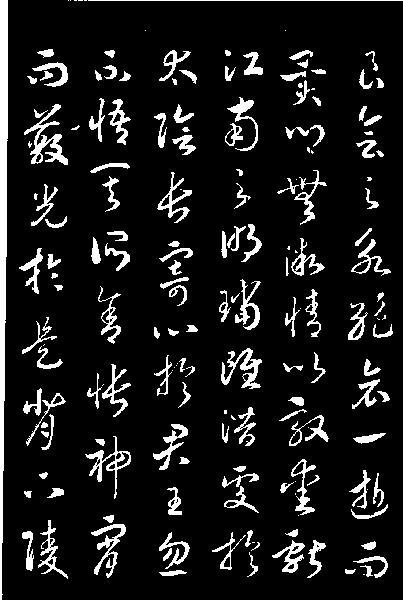 良會之永絕哀一逝而
異鄉無微情以效愛獻
江南之明璫雖潛處於
太陰長寄心於君王忽
不悟其所舍悵神宵
而蔽光於是背下陵